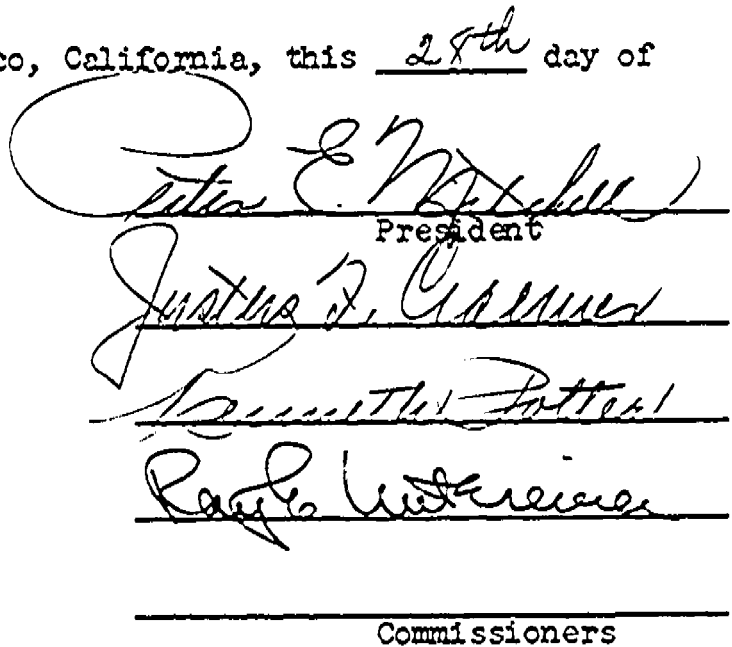 co, California, this 28th day of
Peter E. Mitchell
President
Justus F. Craemer
Kenneth Potter
Ray E. Untereiner
Commissioners